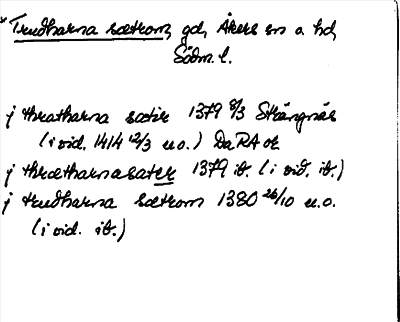 *Trudharna sætrom, gd, Åkers sn o. hd,
Södm. l.
j thratharna sætir 1379 8/3 Strängnäs
(i vid. 1414 12/3 u.o.) DaRA or
j thrætharnasater 1379 ib. (i vid. ib.)
j trudharna sætrom 1380 26/10 u.o.
(i vid. ib.)